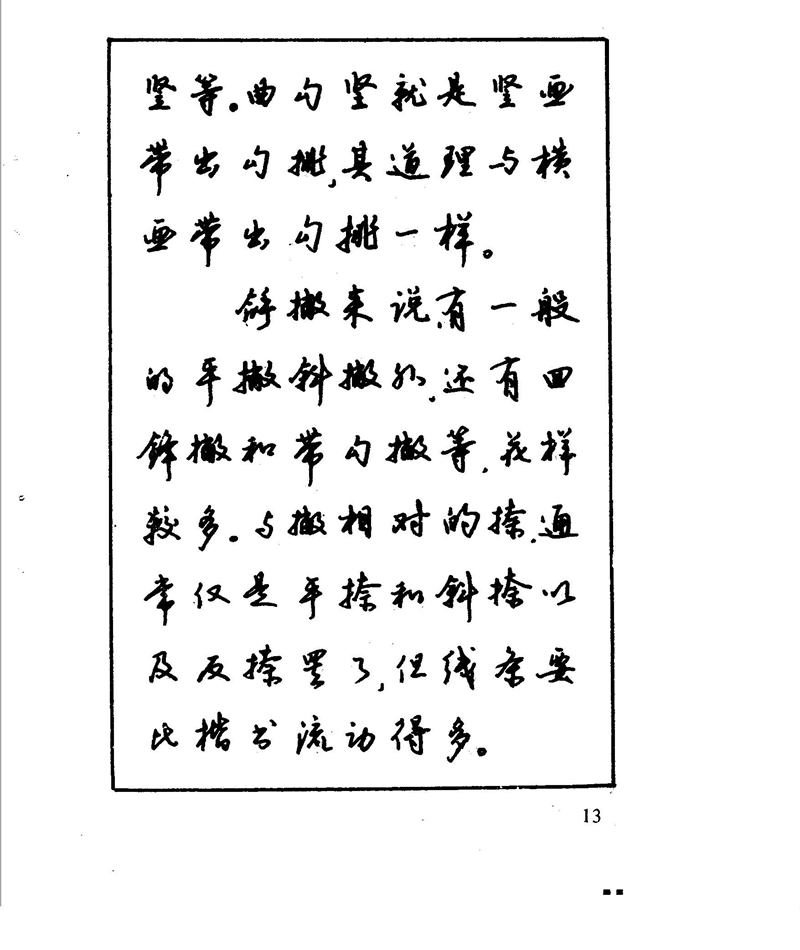 竖等。曲勾竖就是竖画
带出勾挑,其道理与横
画带出勾挑一样。
解撇来说,有一般
的平撇斜撇外,还有回
锋撇和带勾撇等,花样
较多。与撇相对的捺,通
常仅是平捺和斜捺以
及反捺罢了,但线条要
比楷书流动得多。
13